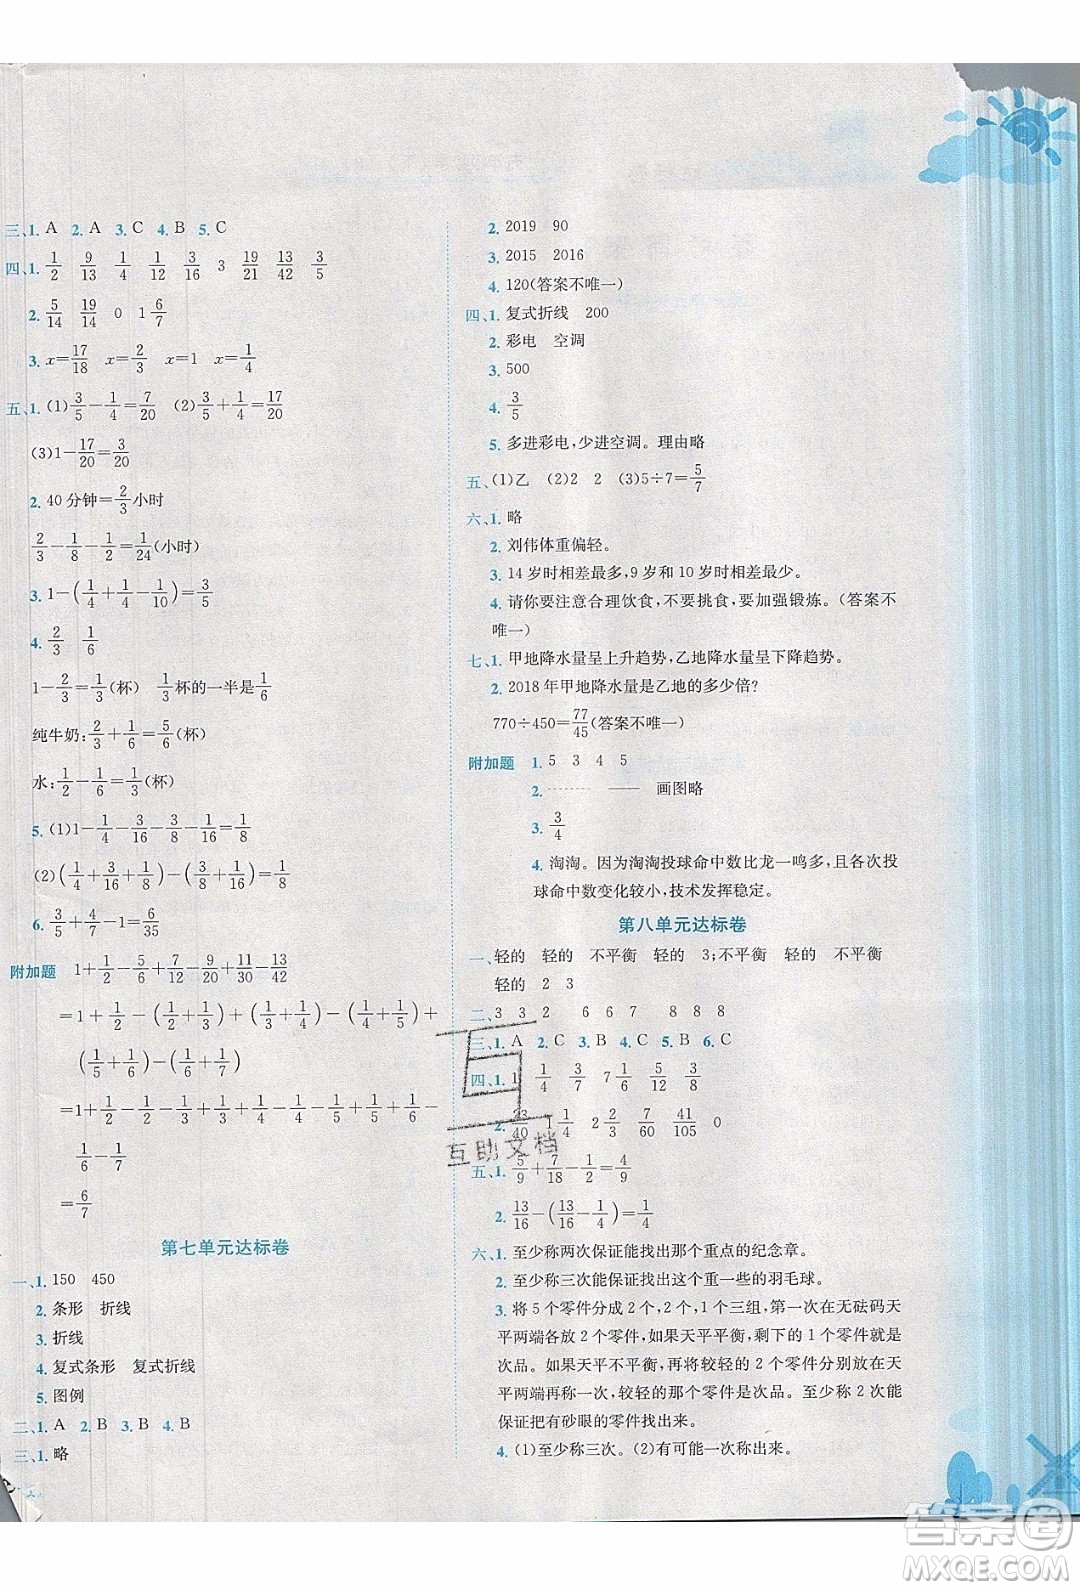 三、1. A 2. A 3. C 4. B 5. C
四、1. 1/2 9/13 1/4 1/12 3/16 3 19/21 13/42 3/5
2. 5/14 19/14 0 1 6/7
3. x=17/18 x=2/3 x=1 x=1/4
五、1. (1)3/5-1/4=7/20 (2)3/5+1/4=17/20
(3)1-17/20=3/20
2. 40分钟=2/3小时
2/3-1/8-1/2=1/24(小时)
3. 1-(1/4+1/4+1/10)=3/5
4. 2/3 1/6
1-2/3=1/3(杯) 1/3杯的一半是1/6
纯牛奶:2/3+1/6=5/6(杯)
水:1/2-1/6=1/3(杯)
5. (1)1-1/4-3/16-3/8-1/8=1/16
(2)(1/4+3/16+1/8)-(3/8-1/8)=5/16
6. 3/5+4/7-1=6/35
附加题 1+1/2-5/6+7/12-9/20+11/30-13/42
=1+1/2-(1/2+1/3)+(1/3+1/4)-(1/4+1/5)+
(1/5+1/6)-(1/6+1/7)
=1+1/2-1/2-1/3+1/3+1/4-1/4-1/5+1/5+1/6-
1/6-1/7
=6/7
第七单元达标卷
一、1. 150 450
2. 条形 折线
3. 折线
4. 复式条形 复式折线
5. 图例
二、1. A 2. B 3. B 4. B
三、1. 略
2. 2019 90
3. 2015 2016
4. 120(答案不唯一)
四、1. 复式折线 200
2. 彩电 空调
3. 500
4. 3/5
5. 多进彩电,少进空调。理由略
五、(1)乙 (2)2 2 (3)5÷7=5/7
六、1. 略
2. 刘伟体重偏轻。
3. 14岁时相差最多,9岁和10岁时相差最少。
4. 请你要注意合理饮食,不要挑食,要加强锻炼。(答案不
唯一)
七、1. 甲地降水量呈上升趋势,乙地降水量呈下降趋势。
2. 2018年甲地降水量是乙地的多少倍?
770÷450=77/45(答案不唯一)
附加题 1. 5 3 4 5
2. -------- —— 画图略
3. 3/4
4. 淘淘。因为淘淘投球命中数比龙一鸣多,且各次投
球命中数变化较小,技术发挥稳定。
第八单元达标卷
一、轻的 轻的 不平衡 轻的 3;不平衡 轻的 不平衡
轻的 2 3
二、3 3 2 6 6 7 8 8 8
三、1. A 2. C 3. B 4. C 5. B 6. C
四、1. 1 1/4 3/7 7 1/6 5/12 3/8
2. 23/40 1 1/4 2 2/3 7/60 41/105 0
五、1. 5/9+7/18-1/2=4/9
2. 13/16-(13/16-1/4)=1/4
六、1. 至少称两次保证能找出那个重点的纪念章。
2. 至少称三次能保证找出那个重一些的羽毛球。
3. 将5个零件分成2个,2个,1个三组,第一次在无砝码天
平两端各放2个零件,如果天平平衡,剩下的1个零件就是
次品。如果天平不平衡,再将较轻的2个零件分别放在天
平两端再称一次,较轻的那个零件是次品。至少称2次能
保证把有砂眼的零件找出来。
4. (1)至少称三次。(2)有可能一次称出来。
互助文档
答案圈
MXQE.COM